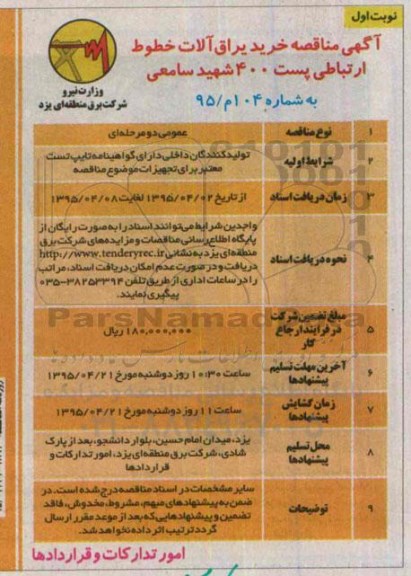 نوبت اول
آگهی مناقصه خرید یراق آلات خطوط
ارتباطی پست ۴۰۰ شهید سامعی
به شماره ۱۰۴م/۹۵
وزارت نیرو
شرکت برق منطقه‌ای یزد
۱ نوع مناقصه عمومی دو مرحله‌ای
۲ شرایط اولیه تولیدکنندگان داخلی دارای گواهینامه تایپ تست
معتبر برای تجهیزات موضوع مناقصه
۳ زمان دریافت اسناد از تاریخ ۱۳۹۵/۰۴/۰۲ لغایت ۱۳۹۵/۰۴/۰۸
۴ نحوه دریافت اسناد واجدین شرایط می‌توانند اسناد را به صورت رایگان از
پایگاه اطلاع رسانی مناقصات و مزایده‌های شرکت برق
منطقه‌ای یزد به نشانی http://www.tenderyrec.ir
دریافت و در صورت عدم امکان دریافت اسناد، مراتب
را در ساعات اداری از طریق تلفن ۳۸۲۵۳۳۹۴-۰۳۵
پیگیری نمایند.
۵ مبلغ تضمین شرکت
در فرایند ارجاع
کار
۱۸۰,۰۰۰,۰۰۰ ریال
۶ آخرین مهلت تسلیم
پیشنهادها
ساعت ۱۰:۳۰ روز دوشنبه مورخ ۱۳۹۵/۰۴/۲۱
۷ زمان گشایش
پیشنهادها
ساعت ۱۱ روز دوشنبه مورخ ۱۳۹۵/۰۴/۲۱
۸ محل تسلیم
پیشنهادها
یزد، میدان امام حسین، بلوار دانشجو، بعد از پارک
شادی، شرکت برق منطقه‌ای یزد، امور تدارکات و
قراردادها
۹ توضیحات سایر مشخصات در اسناد مناقصه درج شده است. در
ضمن به پیشنهادهای مبهم، مشروط، مخدوش، فاقد
تضمین و پیشنهادهایی که بعد از موعد مقرر ارسال
گردد ترتیب اثر داده نخواهد شد.
امور تدارکات و قراردادها
ParsNamad